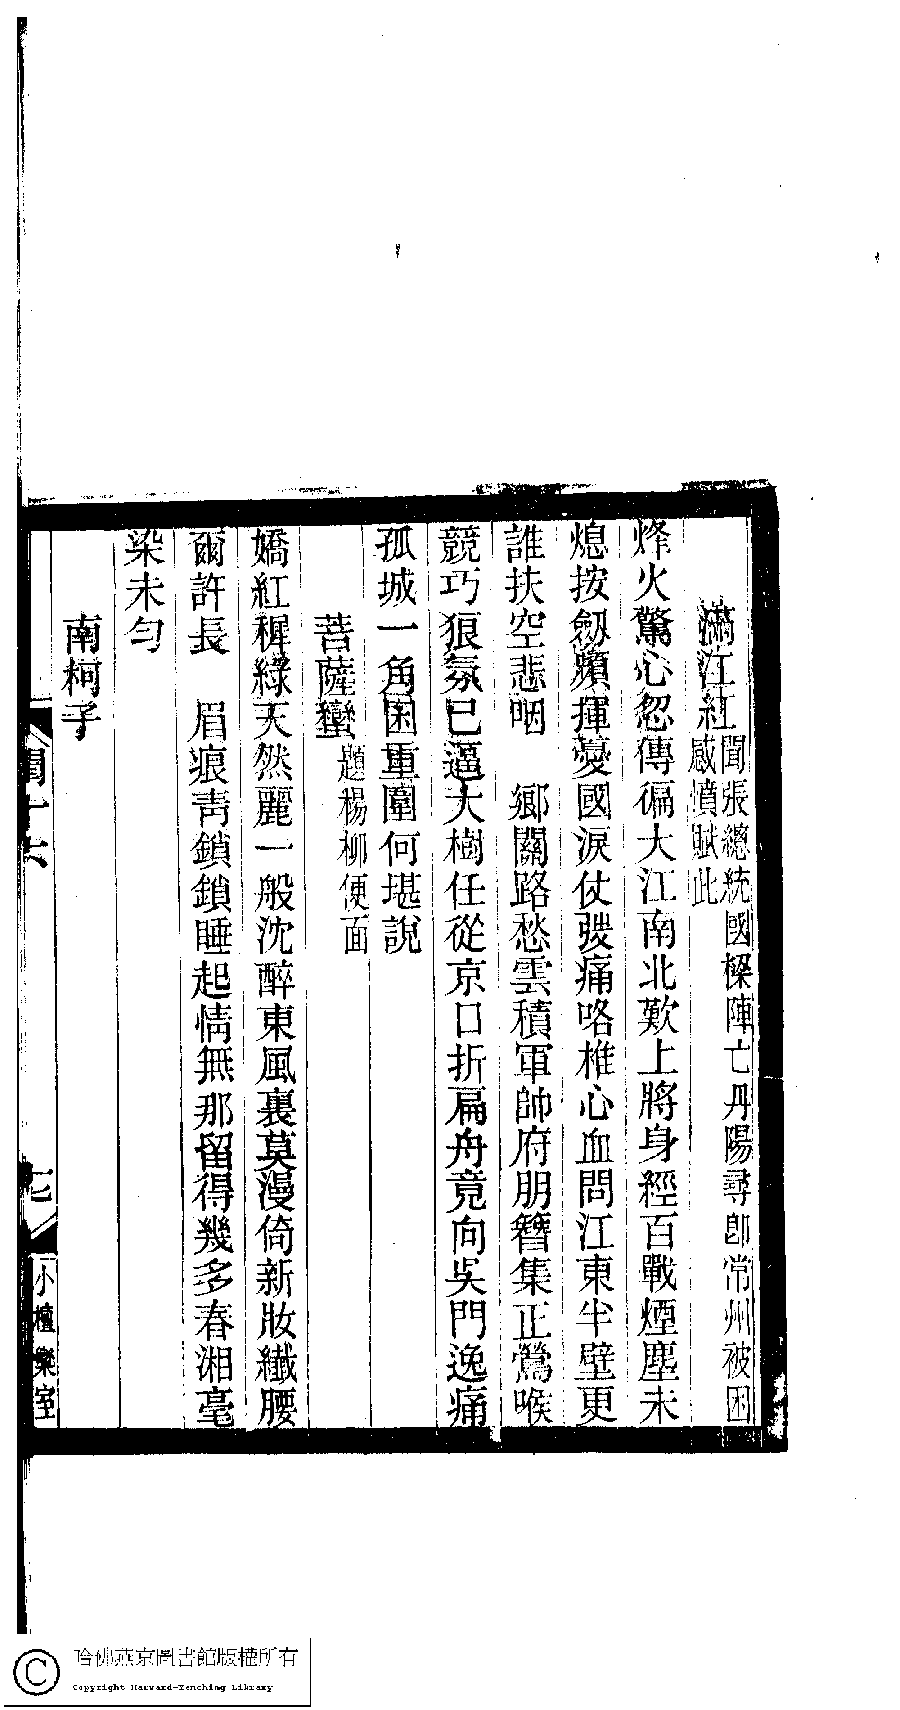 滿江紅 聞張總統國樑陣亡丹陽尋卽常州被困
感憤賦此
烽火驚心忽傳徧大江南北歎上將身經百戰煙塵未
熄按劒頻揮憂國淚仗戣痛咯椎心血問江東半壁更
誰扶空悲咽　鄉關路愁雲積軍帥府朋簪集正鶯喉
競巧狼氛已逼大樹任從京口折扁舟竟向吳門逸痛
孤城一角困重圍何堪說
菩薩蠻 題楊柳便面
嬌紅稺綠天然麗一般沈醉東風裏莫漫倚新妝纖腰
爾許長　眉痕靑鎖鎖睡起情無那留得幾多春湘毫
染未勻
南柯子
閨十六
七
小檀欒室
哈佛燕京圖書館版權所有
Copyright Harvard-Yenching Library